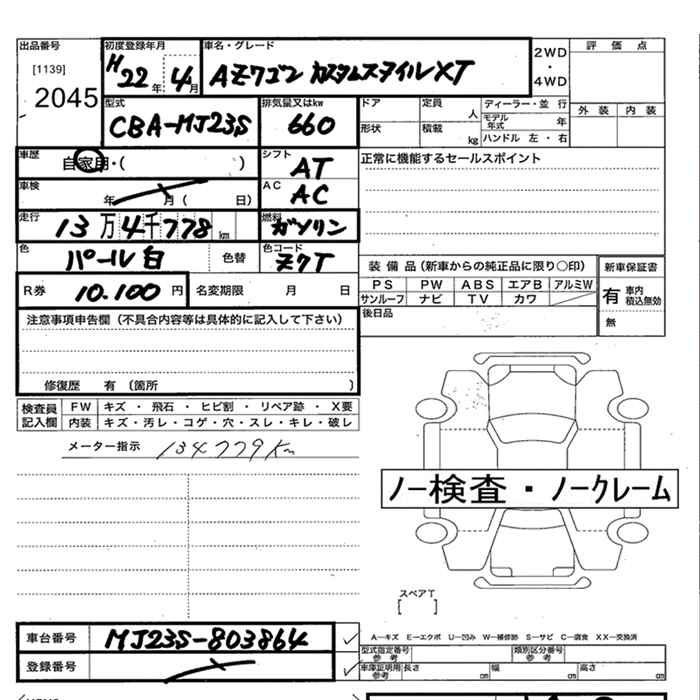 出品番号 [1139] 2045
初度登録年月 H22年 4月
車名・グレード AZワゴン カスタムスタイルXT
2WD・4WD
評価点
外装 内装
型式 CBA-MJ23S
排気量又はkw 660
ドア 定員 人
形状 積載 kg
ディーラー・並行
モデル年式 年
ハンドル 左・右
車歴 自家用・( )
シフト AT
正常に機能するセールスポイント
車検 年 月( 日)
AC AC
走行 13万4千778km
燃料 ガソリン
色 パール白 色替
色コード Z7T
装備品(新車からの純正品に限り○印)
PS PW ABS エアB アルミW
サンルーフ ナビ TV カワ
新車保証書
有 車内積込無効
無
R券 10.100円
名変期限 月 日
後日品
注意事項申告欄(不具合内容等は具体的に記入して下さい)
修復歴 有(箇所 )
検査員記入欄
FW キズ・飛石・ヒビ割・リペア跡・X要
内装 キズ・汚レ・コゲ・穴・スレ・キレ・破レ
メーター指示 134779Km
ノー検査・ノークレーム
スペアT
[ ]
車台番号 MJ23S-803864
登録番号
A―キズ E―エクボ U―凹み W―補修跡 S―サビ C―腐食 XX―交換済
型式指定番号 参考
類別区分番号 参考
車庫証明用 参考 長さ cm 幅 cm 高さ cm